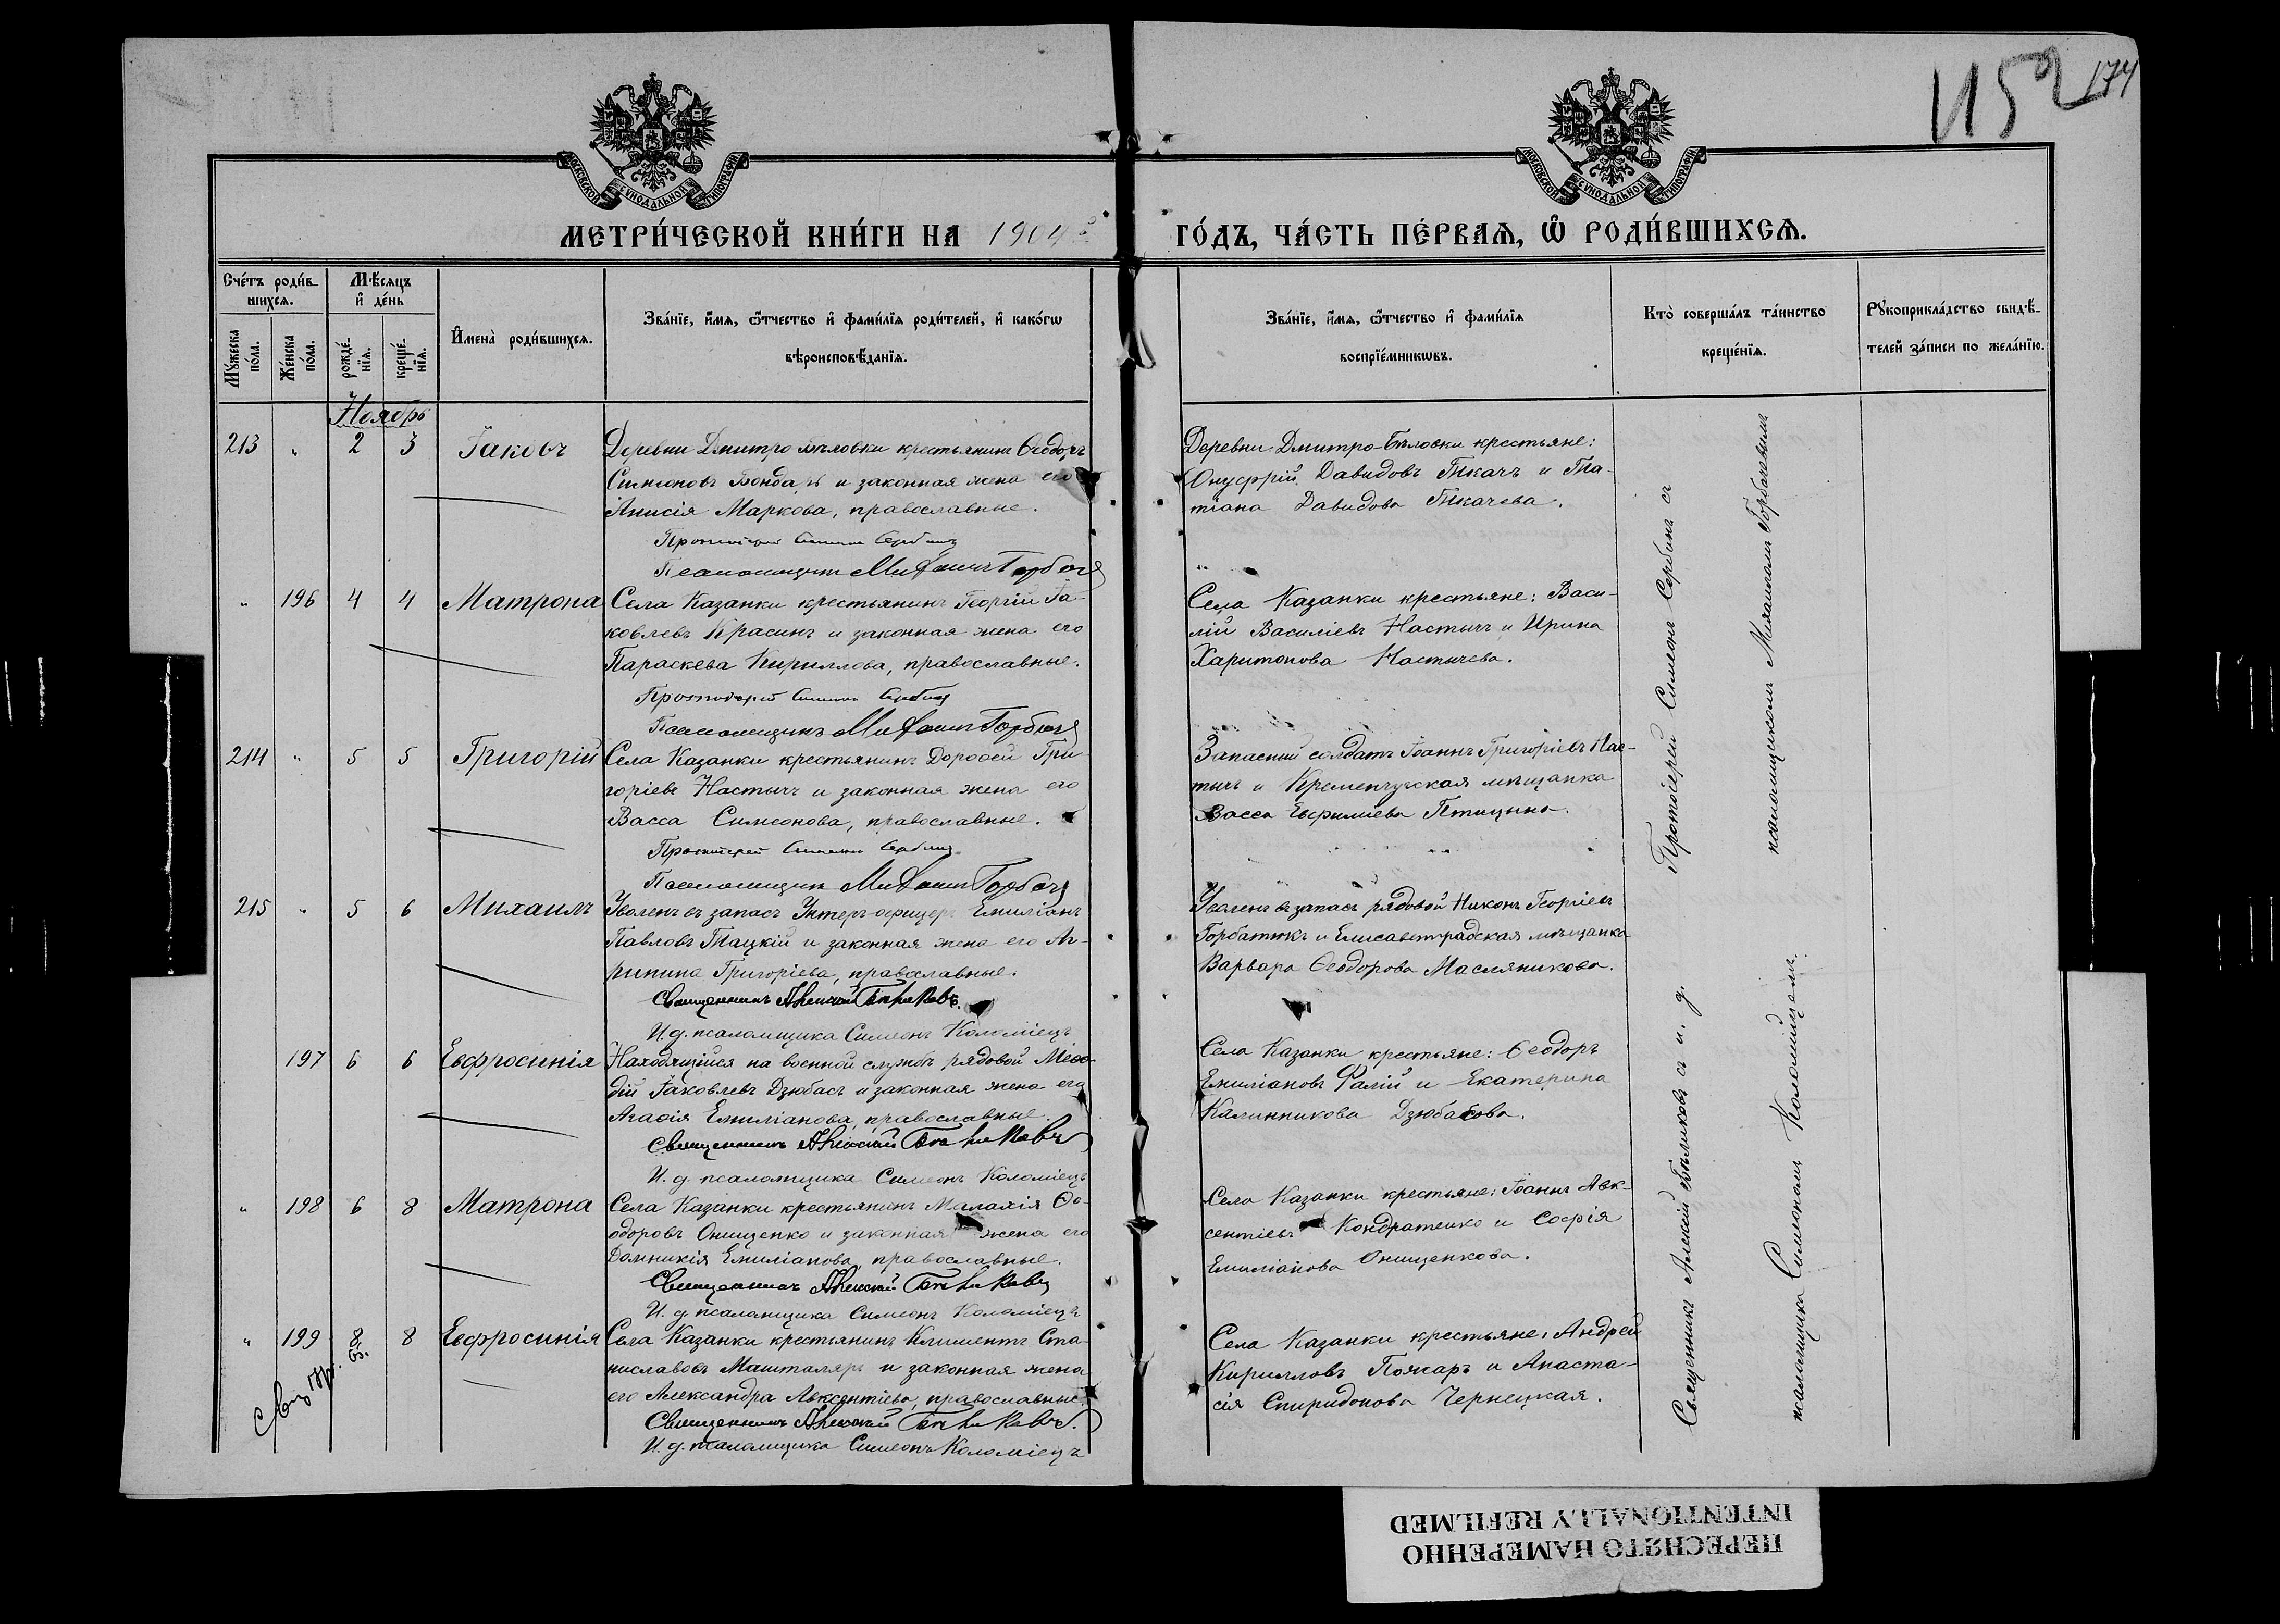 1152 174
МОСКОВСКОЙ СѴНОДАЛЬНОЙ ТИПОГРАФІИ
МОСКОВСКОЙ СѴНОДАЛЬНОЙ ТИПОГРАФІИ
МЕТРИ́ЧЕСКОЙ КНИ́ГИ НА 1904й
ГО́ДЪ, ЧА́СТЬ ПЕ́РВАѦ, Ѡ҆ РОДИ́ВШИХСѦ.
Сче́тъ роди́в-
шихсѧ.
Мѣ́сяцъ
и҆ де́нь
Мꙋ́жеска
по́ла.
Же́нска
по́ла.
рожде́-
нїѧ.
креще́-
нїѧ.
И҆мена̀ роди́вшихсѧ.
Зва́нїе, и҆́мѧ, ѻ҆́тчество и҆ фами́лїѧ роди́телей, и҆ како́гѡ
вѣроисповѣ́данїѧ.
Зва́нїе, и҆́мѧ, ѻ҆́тчество и҆ фами́лїѧ
воспрїе́мникѡвъ.
Кто̀ соверша́лъ та́инство
креще́нїѧ.
Рꙋкоприкла́дство свидѣ́-
телей за́писи по жела́нїю.
Ноябрь
213 " 2 3 Іаковъ
Деревни Дмитро-Бѣловки крестьянинъ Ѳеодоръ
Симеоновъ Бондарь и законная жена его
Анисія Маркова, православные.
Протоіерей Симеонъ Сербинъ
Псаломщикъ Михаилъ Горбачъ
Деревни Дмитро-Бѣловки крестьяне:
Онуфрій Давидовъ Ткачъ и Та-
тіана Давидова Ткачева.
" 196 4 4 Матрона
Села Казанки крестьянинъ Георгій Іа-
ковлевъ Красинъ и законная жена его
Параскева Кириллова, православные.
Протоіерей Симеонъ Сербинъ
Псаломщикъ Михаилъ Горбачъ
Села Казанки крестьяне: Васи-
лій Василіевъ Настычъ и Ирина
Харитонова Настычева.
214 " 5 5 Григорій
Села Казанки крестьянинъ Дороѳей Гри
горіевъ Настычъ и законная жена его
Васса Симеонова, православные.
Протоіерей Симеонъ Сербинъ
Псаломщикъ Михаилъ Горбачъ
Запасный солдатъ Іоаннъ Григоріевъ Нас-
тычъ и Кременчугская мѣщанка
Васса Евфиміева Птицына.
215 " 5 6 Михаилъ
Уволенъ въ запасъ Унтеръ-офицеръ Емиліанъ
Павловъ Тацкій и законная жена его Аг-
рипина Григоріева, православные.
Священникъ Алексій Бѣликовъ.
И. д. псаломщика Симеонъ Коломіецъ
Уволенъ въ запасъ рядовой Никонъ Георгіевъ
Горбатюкъ и Елисаветградская мѣщанка
Варвара Ѳеодорова Масляникова.
197 6 6 Евфросинія
Находящійся на военной службѣ рядовой Меѳо-
дій Іаковлевъ Дзюбасъ и законная жена его
Агаѳія Емиліанова, православные.
Священникъ Алексій Бѣликовъ
И. д. псаломщика Симеонъ Коломіецъ
Села Казанки крестьяне: Ѳеодоръ
Емиліановъ Фалій и Екатерина
Калинникова Дзюбасова.
" 198 6 8 Матрона
Села Казанки крестьянинъ Малахія Ѳе-
одоровъ Онищенко и законная жена его
Домникія Емиліанова, православные.
Священникъ Алексій Бѣликовъ
И. д. псаломщика Симеонъ Коломіецъ
Села Казанки крестьяне: Іоаннъ Авк-
сентіевъ Кондратенко и Софія
Емиліанова Онищенкова.
" 199 8 8 Евфросинія
Села Казанки крестьянинъ Климентъ Ста-
ниславовъ Машталяръ и законная жена
его Александра Авксентіева, православные.
Священникъ Алексій Бѣликовъ.
И. д. псаломщика Симеонъ Коломіецъ
Села Казанки крестьяне: Андрей
Кирилловъ Пожаръ и Анаста-
сія Спиридонова Чернецкая.
Протоіерей Симеонъ Сербинъ съ
псаломщикомъ Михаиломъ Горбачевымъ
Священникъ Алексій Бѣликовъ съ и. д.
псаломщика Симеономъ Коломійцемъ.
ПЕРЕСНЯТО НАМЕРЕННО
INTENTIONALLY REFILMED